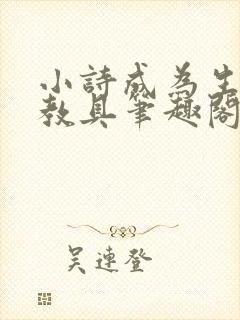 小詩成為生
教具筆趣閣
吳連登